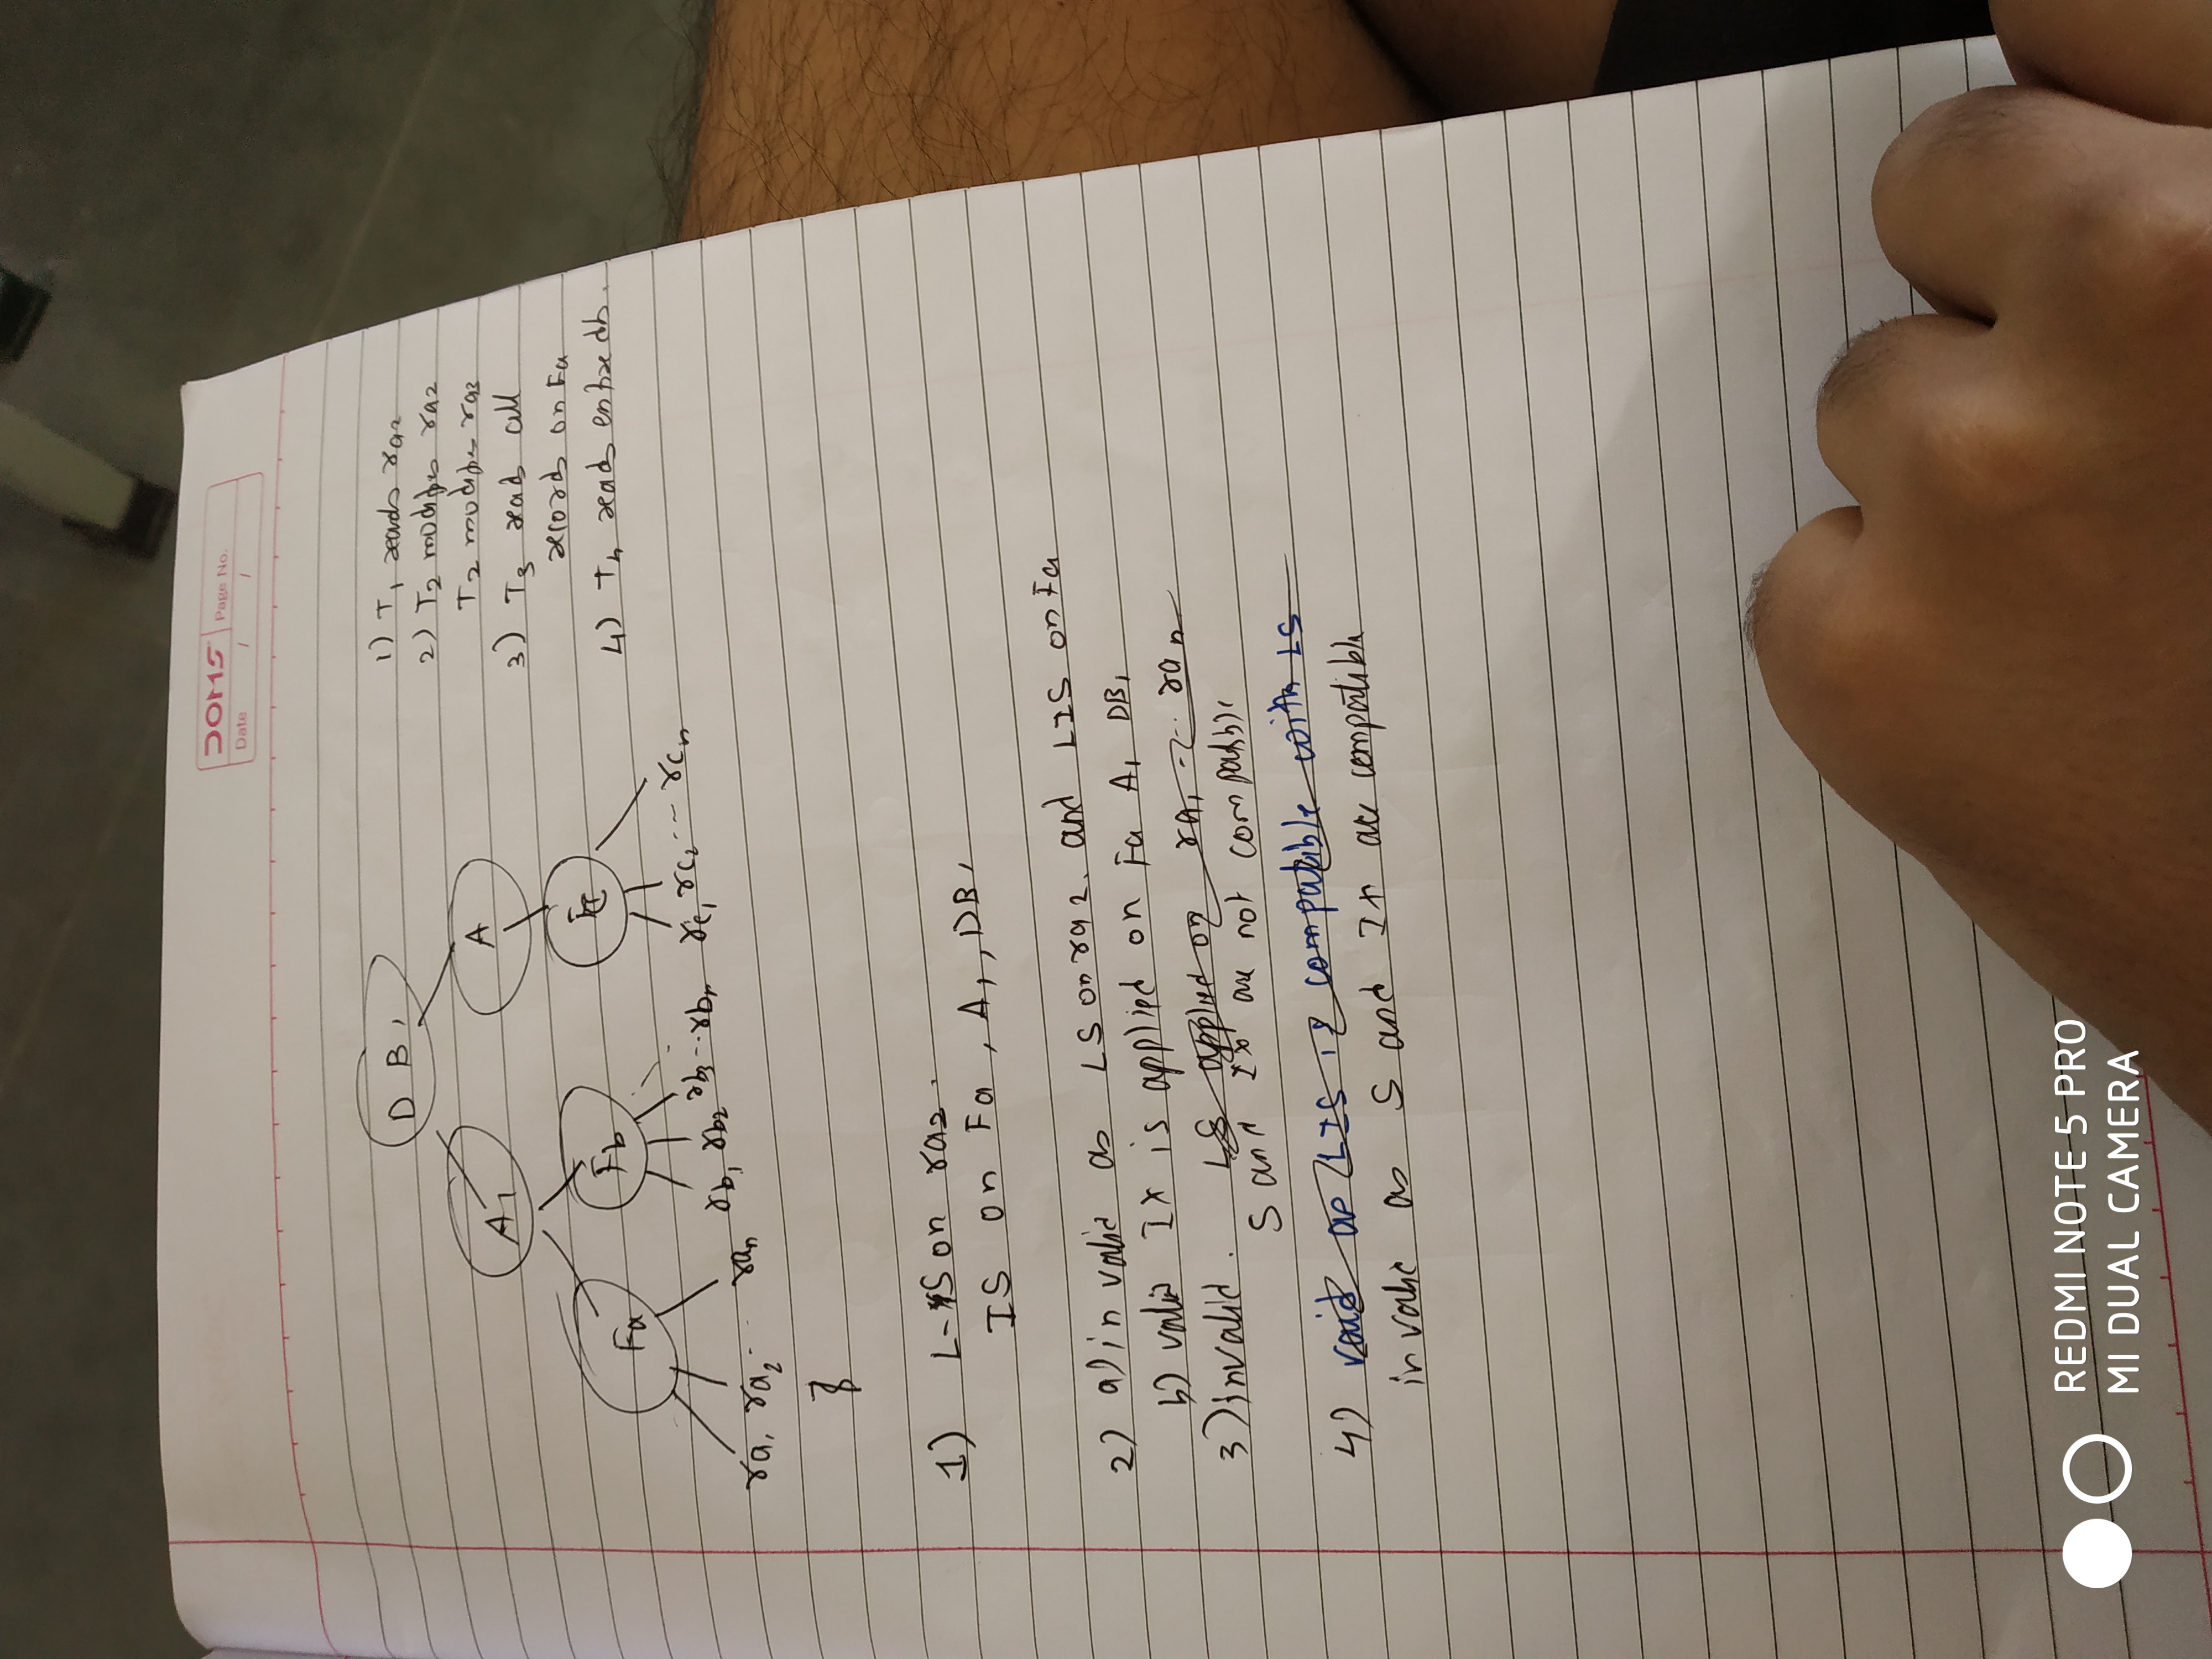 DOMS
Page No.
Date / /
DB1
A1 A
Fa Fb Fc
ra1 ra2 .. ran rb1 rb2 rb3 .. rbn rc1 rc2 ... rcn
1) T1 reads ra2
2) T2 modifies ra2
T2 modifies ra3
3) T3 reads all
records on Fa
4) T4 reads entire db.
1) L-S on ra2.
IS on Fa, A1, DB1
2) a) invalid as LS on ra2. and LIS on Fa
b) valid IX is applied on Fa A1 DB1
3) invalid. LS applied on ra1 -- ran
S and IX are not compatible
4) valid as LIS is compatible with LS
invalid as S and IX are compatible
REDMI NOTE 5 PRO
MI DUAL CAMERA